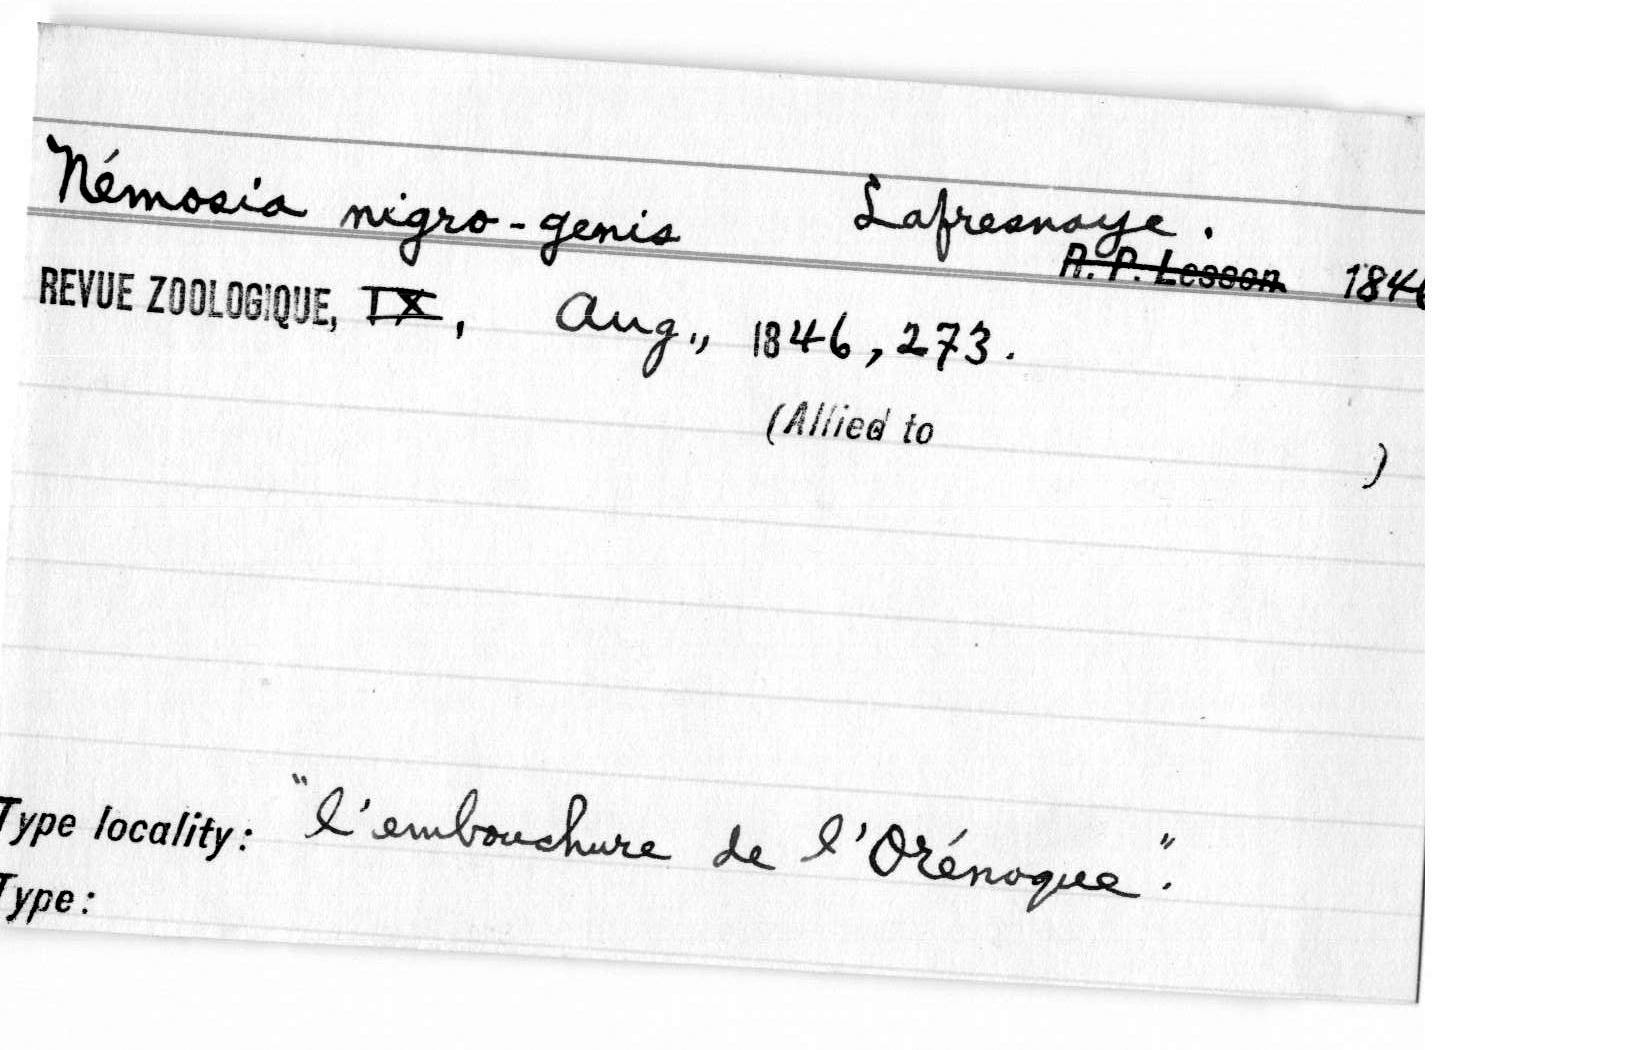 Némosia nigro-genis Lafresnaye.
R. P. Lesson 1846
REVUE ZOOLOGIQUE, IX, Aug., 1846, 273.
(Allied to )
Type locality: "l'embouchure de l'Orénoque".
Type: